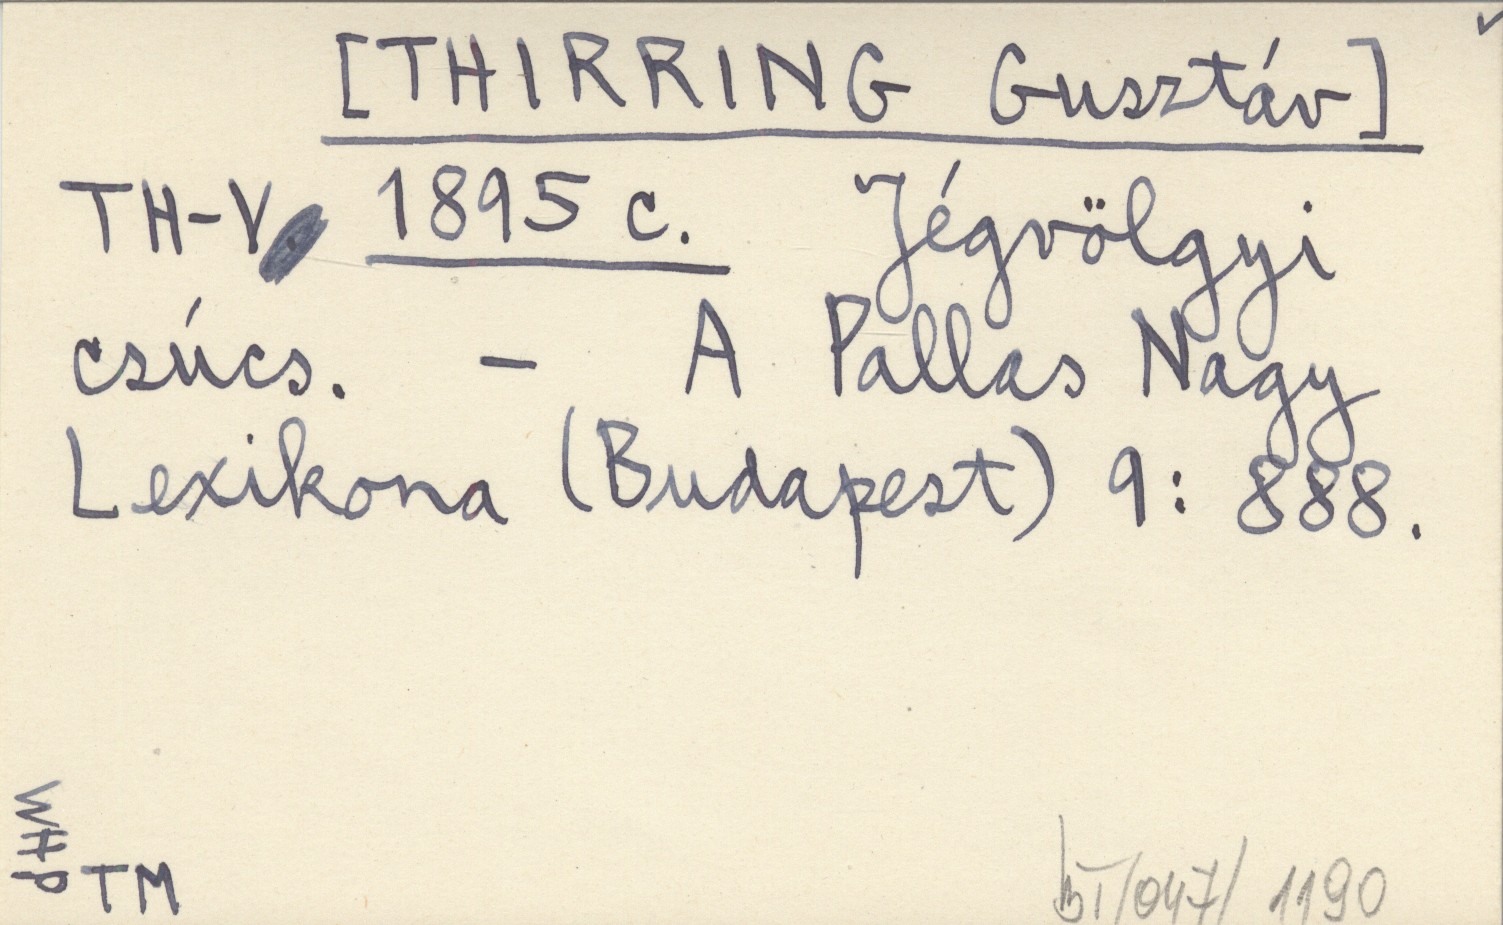 [THIRRING Gusztáv]
TH-V. 1895 c. Jégvölgyi
csúcs. – A Pallas Nagy
Lexikona (Budapest) 9: 888.
WHP
TM
/047/ 1190